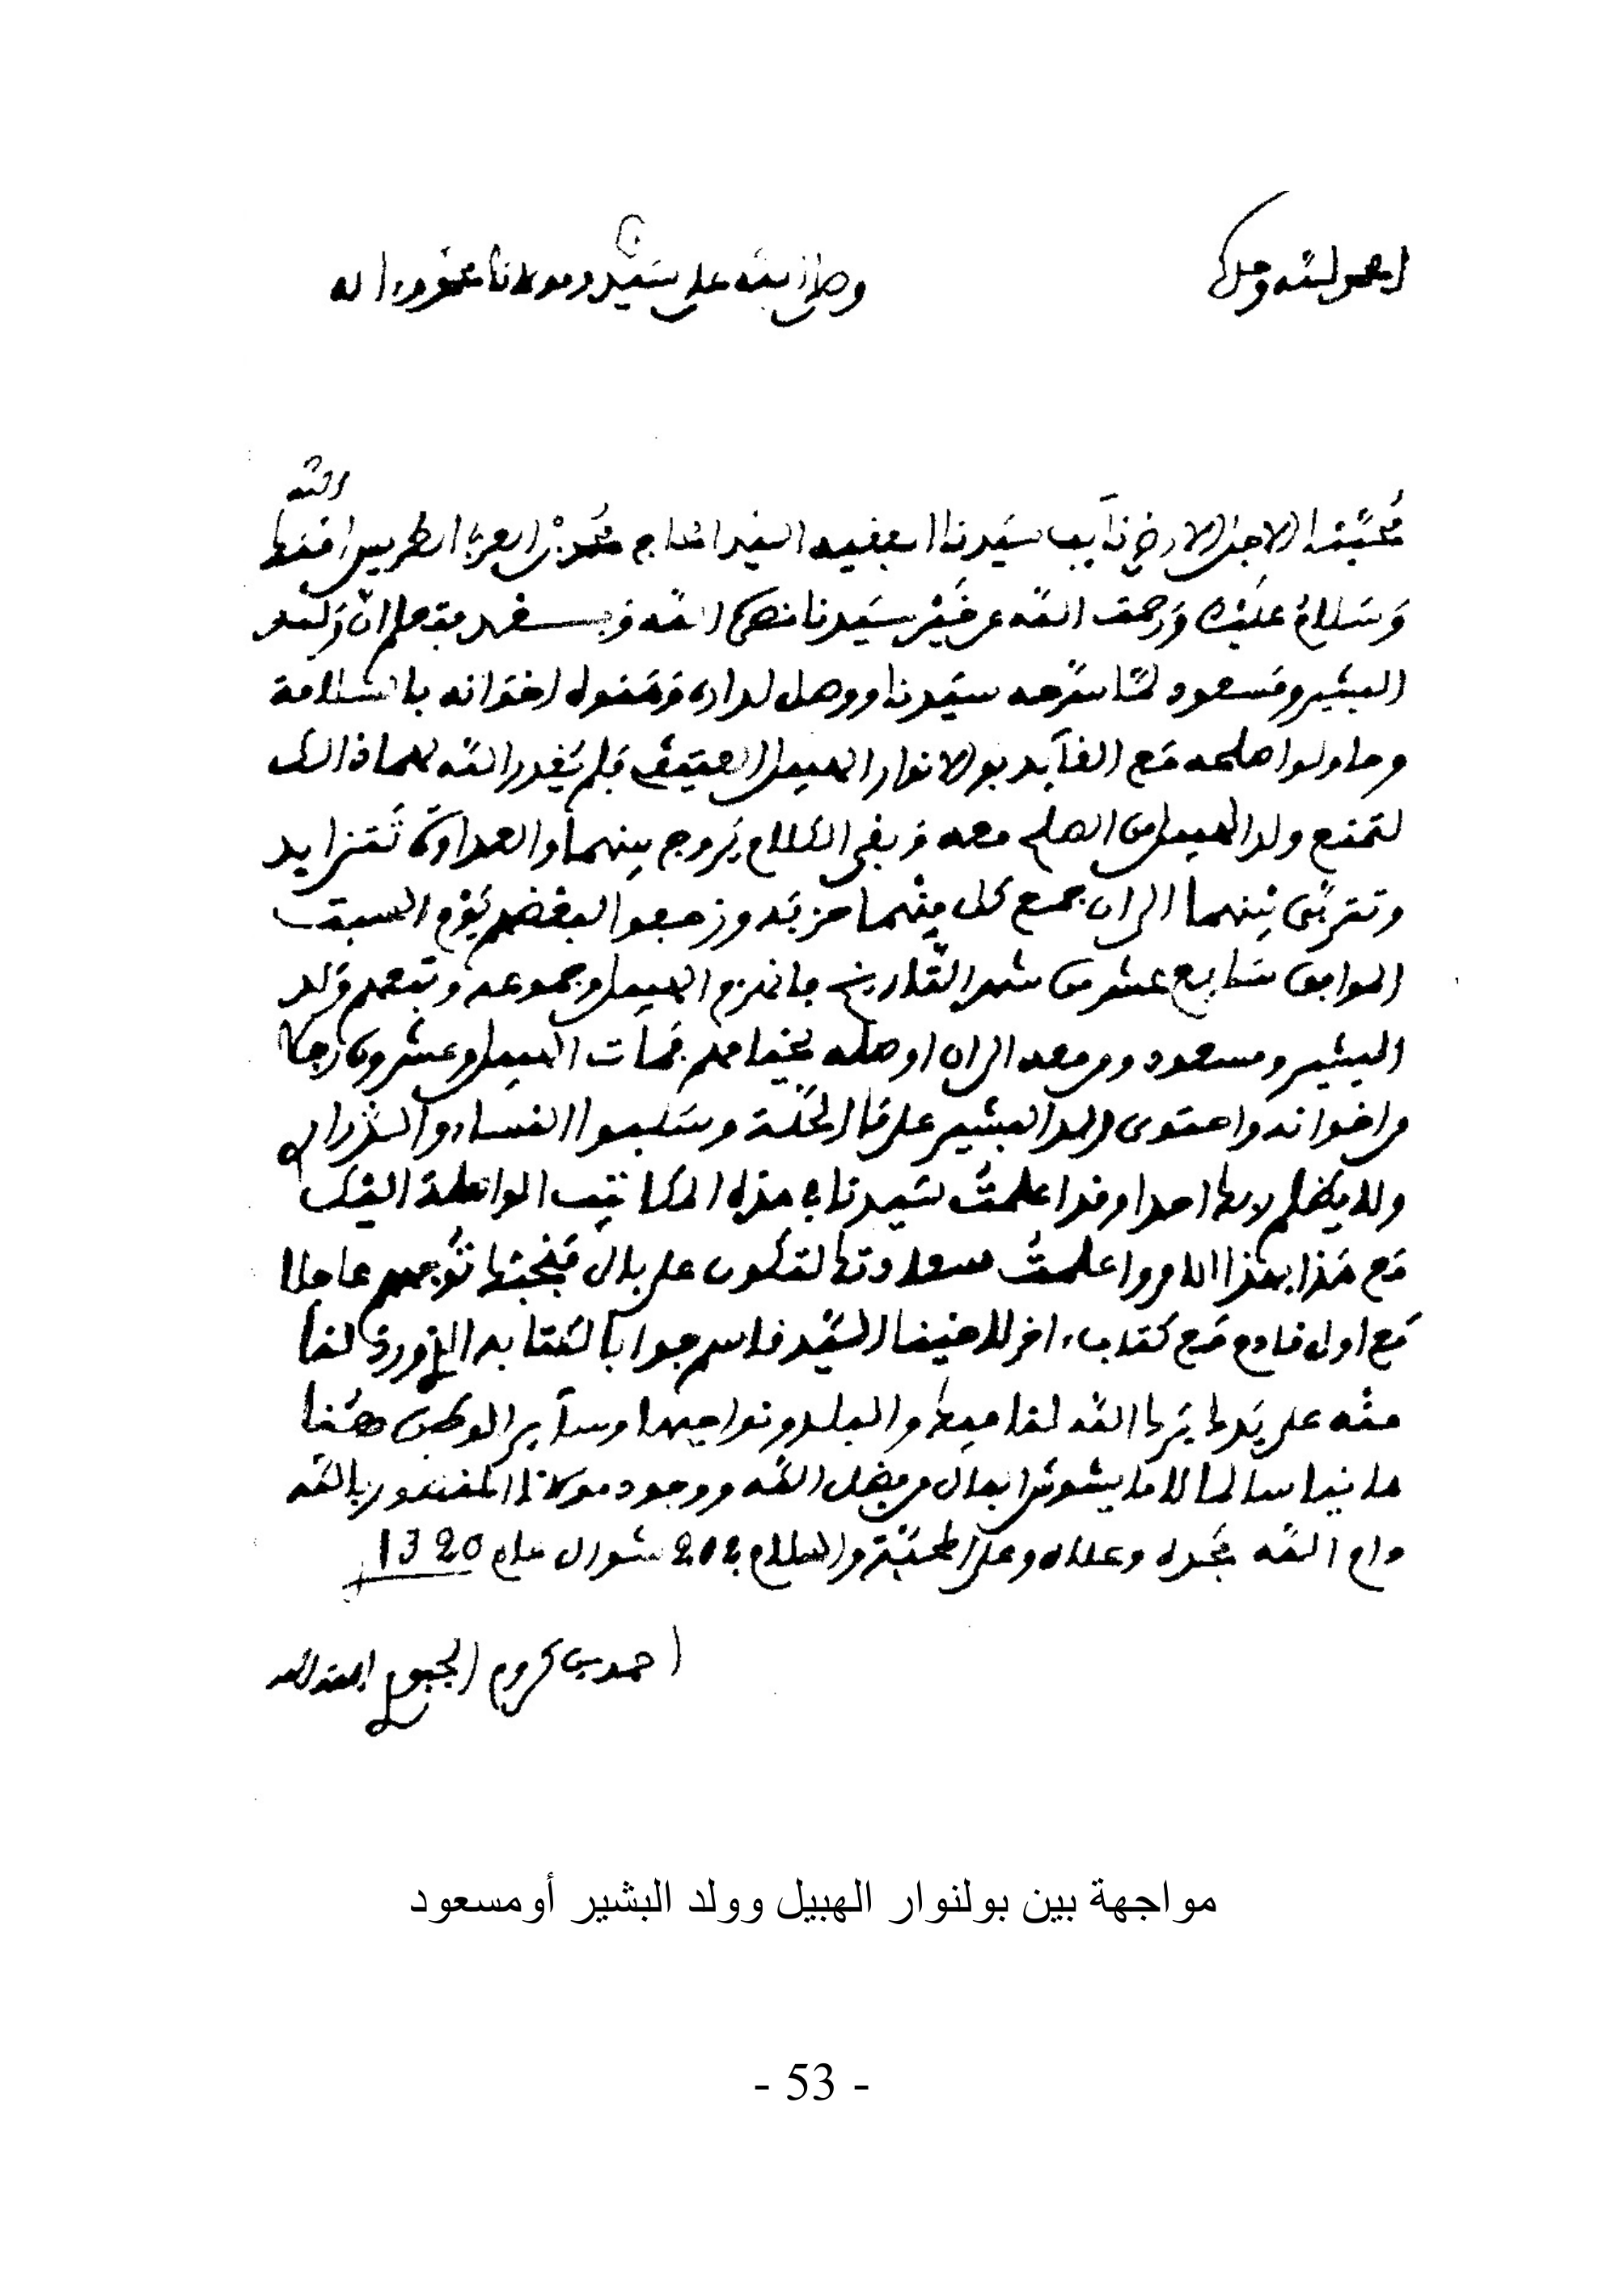 الحمد لله وحده
وصلى الله على سيدنا ومولانا محمد وءاله
الله
محبنا الاجل الارضى نايب سيدنا الفقيه السيد الحاج محمد بن العربي الطريس امنك
وسلام عليك ورحمت الله عن خير سيدنا نصره الله وبعد فتعلم ان ولد
البشير ومسعود لما سرحه سيدنا ووصل لداره وهنوه اخوانه بالسلامة
وحاولوا صلحه مع القايد بو الانوار الهبيل العتيقي فلم يقدر الله لهما ذالك
لتمنع ولد الهبيل من الصلح معه وبقى الكلام يروج بينهما والعداوة تتزايد
وتتربى بينهما الى ان جمع كل منهما حزبه وزحفوا لبعضهم يوم السبت
الموافق سابع عشر من شهر التاريخ فانهزم الهبيل وجموعه وتبعهم ولد
البشير ومسعود ومن معه الى ان اوصله لخيامهم فمات الهبيل وعشرون رجلا
من اخوانه واحتوى ولد البشير على الحلة وسلبوا النساء والذراري
ولا يظلم ربك احدا وقد اعلمت سيدنا في هذه المكاتيب الواصلة اليك
مع هذا بهذا الامر واعلمت سعادتك لتكون على بال فنحبك توجههم عاجلا
مع اول قادم مع كتاب ءاخر لاخينا السيد قاسم جوابا لكتابه الذي ورد لنا
منه على يدك يرد الله لقا فيك والبلد ونواحيها وساير الوطن هنا
هانيا سالما لا ما يشوش البال من فضل الله ووجود مولانا المنصور بالله
دام الله مجده وعلاه وعلى المحبة والسلام في 20 شوال عام 1320
احمد بن كروم الجبوري الله له
مواجهة بين بولنوار الهبيل وولد البشير أومسعود
- 53 -